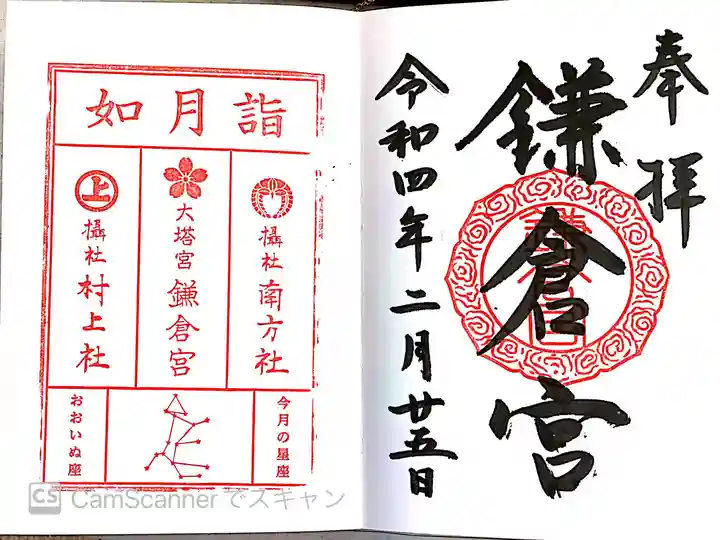 奉拝
鎌倉宮
令和四年二月廿五日
如月詣
攝社 南方社
大塔宮 鎌倉宮
上
攝社 村上社
今月の星座
おおいぬ座
CS CamScanner でスキャン